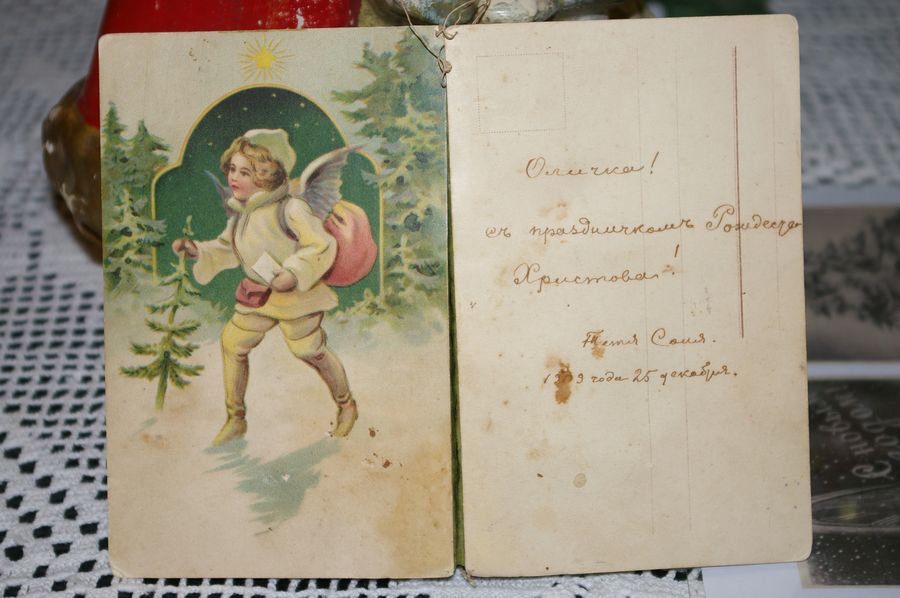 Оличка!
съ праздничкомъ Рождества
Христова!
Тетя Соня.
года 25 декабря.
С новым
годом